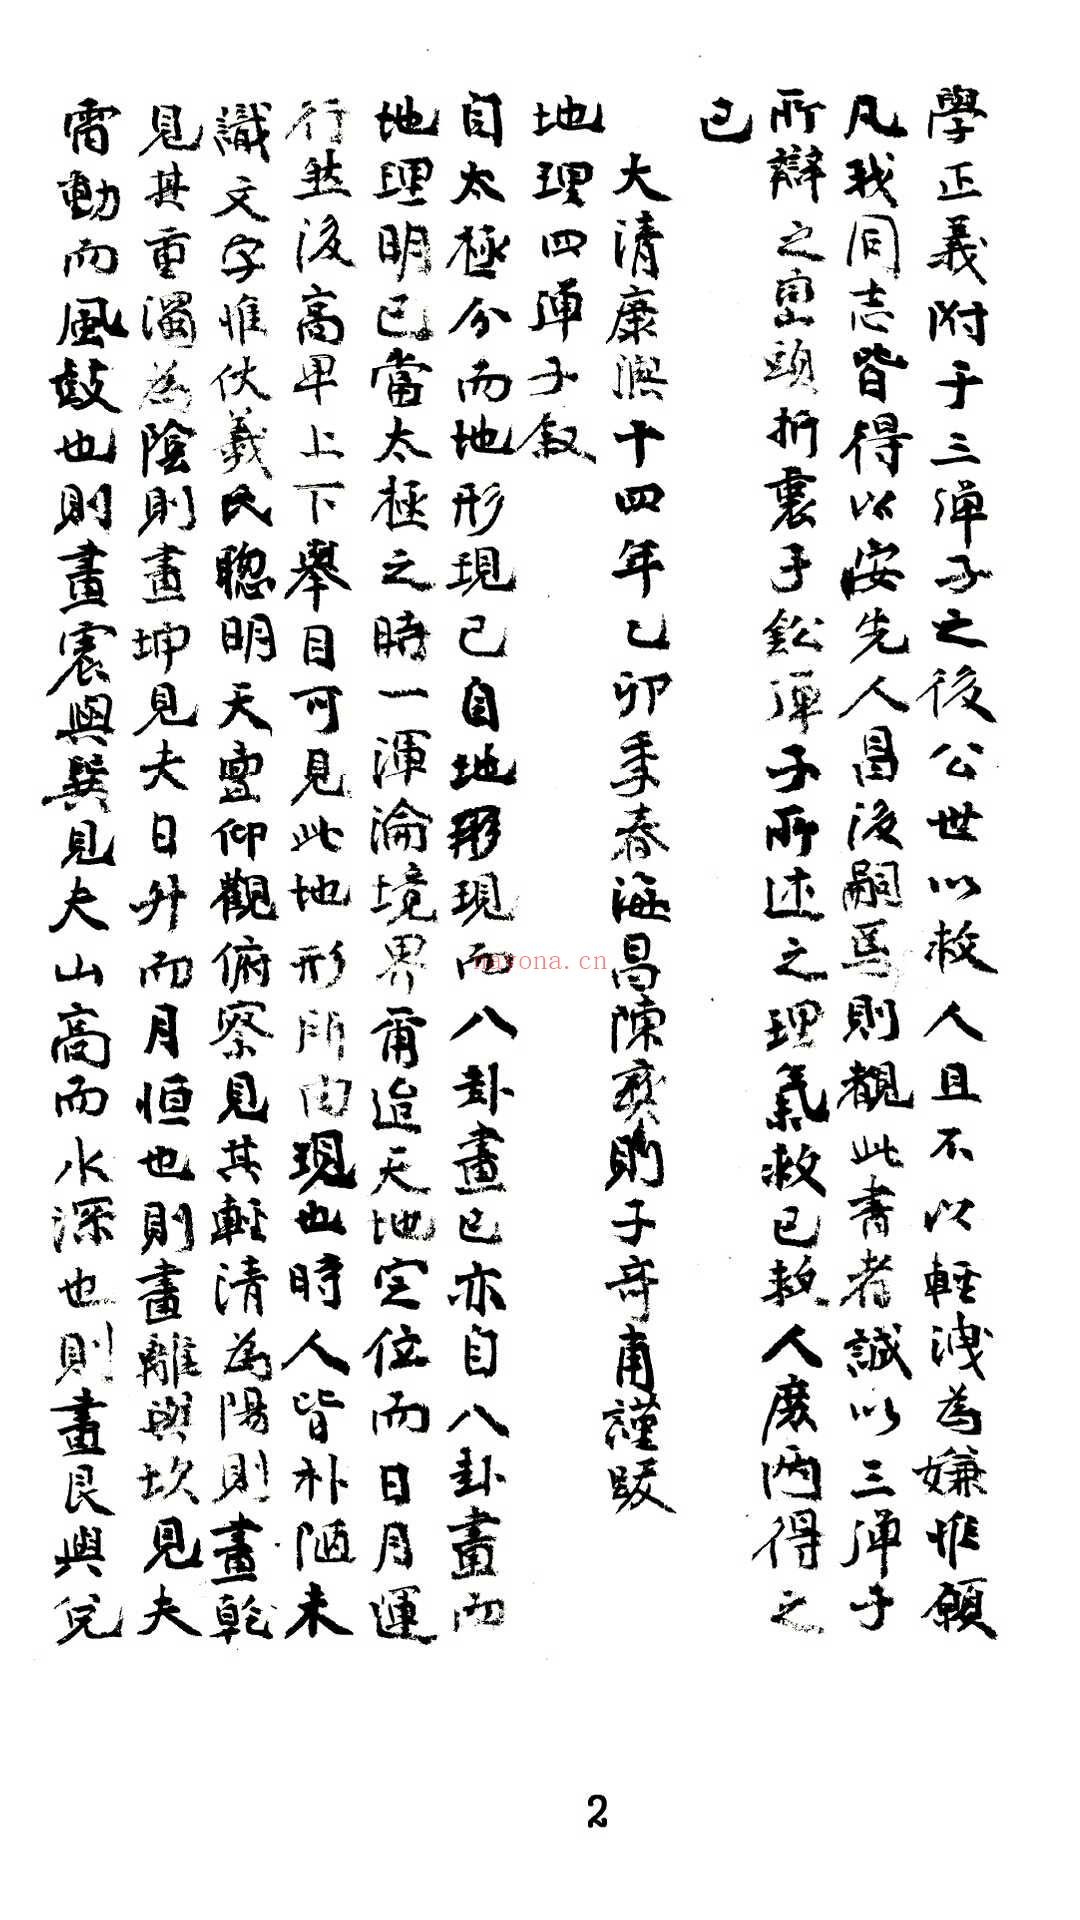 學正義附于三彈子之後公世以救人且不以輕洩為嫌惟願
凡我同志皆得以安先人昌後嗣焉則觀此書者誠以三彈子
所辯之巒頭折衷于鉛彈子所述之理氣救已救人庶兩得之
已
大清康熙十四年乙卯季春海昌陳彝則子奇甫謹跋
地理四彈子敘
自太極分而地形現已自地形現而八卦畫已亦自八卦畫而
地理明已當太極之時一渾淪境界爾迨天地定位而日月運
行然後高卑上下舉目可見此地形所由現也時人皆朴陋未
識文字惟伏義氏聰明天亶仰觀俯察見其輕清為陽則畫乾
見其重濁為陰則畫坤見夫日升而月恒也則畫離與坎見夫
雷動而風鼓也則畫震與巽見夫山高而水深也則畫艮與兌
nayona.cn
2